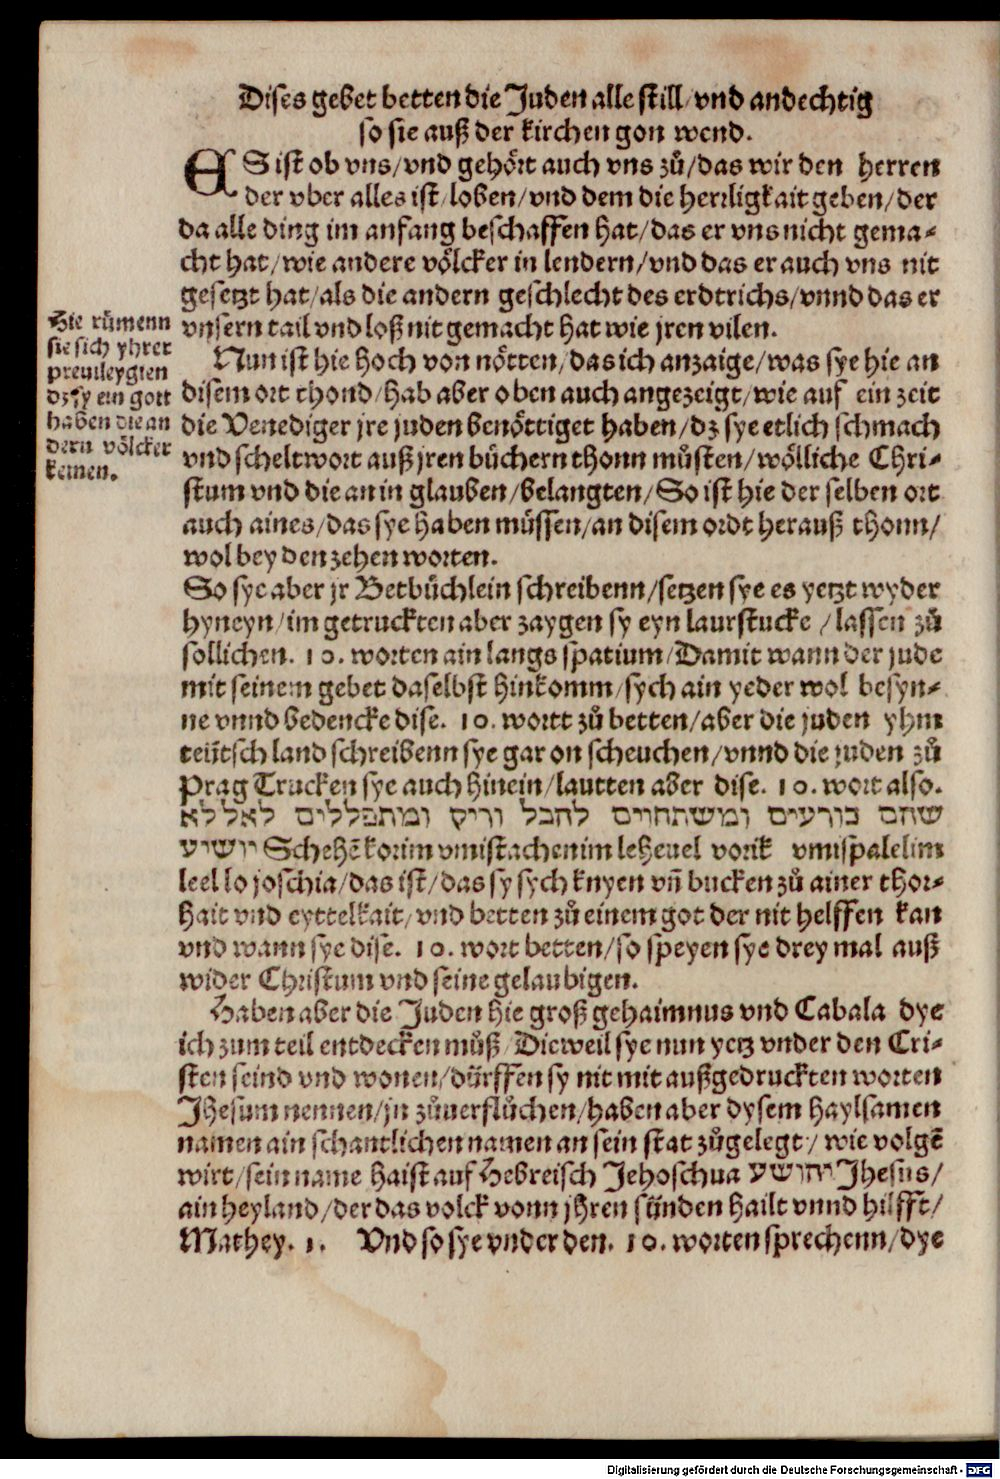 Dises gebet betten die Juden alle still/ vnd andechtig
so sie auß der kirchen gon wend.
ES ist ob vns/vnd gehört auch vns zů/das wir den herren
der vber alles ist/loben/vnd dem die herrligkait geben/der
da alle ding im anfang beschaffen hat/das er vns nicht gema-
cht hat/wie andere völcker in lendern/vnd das er auch vns nit
gesetzt hat/als die andern geschlecht des erdtrichs/vnnd das er
vnsern tail vnd loß nit gemacht hat wie jren vilen.
Hie rümenn
sie sich yhrer
preuileygien
dz sy ein gott
haben die an
dern völcker
keinen.
Nun ist hie hoch von nötten/das ich anzaige/was sye hie an
disem ort thond/hab aber oben auch angezeigt/wie auf ein zeit
die Venediger jre juden benöttiget haben/dz sye etlich schmach
vnd scheltwort auß jren büchern thonn müsten/wölliche Chri-
stum vnd die an in glauben/belangten/So ist hie der selben ort
auch aines/das sye haben müssen/an disem ordt herauß thonn/
wol bey den zehen worten.
So sye aber jr Betbüchlein schreibenn/setzen sye es yetzt wyder
hyneyn/im getruckten aber zaygen sy eyn laur stucke/lassen zů
sollichen. 10. worten ain langs spatium/Damit wann der jude
mit seinem gebet daselbst hinkomm/sych ain yeder wol besyn-
ne vnnd bedencke dise. 10. wortt zů betten/aber die juden yhm
teütsch land schreibenn sye gar on scheuchen/vnnd die juden zů
Prag Trucken sye auch hinein/lautten aber dise. 10. wort also.
שהם כורעים ומשתחוים להבל וריק ומתפללים לאל לא
יושיע Schehē korim vmistachenim leheuel vorik vmispalelim
leel lo joschia/das ist/das sy sych knyen vñ bucken zů ainer thor-
hait vnd eyttelkait/vnd betten zů einem got der nit helffen kan
vnd wann sye dise. 10. wort betten/so speyen sye drey mal auß
wider Christum vnd seine gelaubigen.
Haben aber die Juden hie groß gehaimnus vnd Cabala dye
ich zum teil entdecken můß/Dieweil sye nun yetz vnder den Cri-
sten seind vnd wonen/dürffen sy nit mit außgedruckten worten
Jhesum nennen/jn zůuerflůchen/haben aber dysem haylsamen
namen ain schantlichen namen an sein stat zůgelegt/ wie volgē
wirt/sein name haist auf Hebreisch Jehoschua יהושע Jhesus/
ain heyland/der das volck vonn jhren sünden hailt vnnd hilfft/
Mathey. 1. Vnd so sye vnder den. 10. worten sprechenn/dye
Digitalisierung gefördert durch die Deutsche Forschungsgemeinschaft - DFG